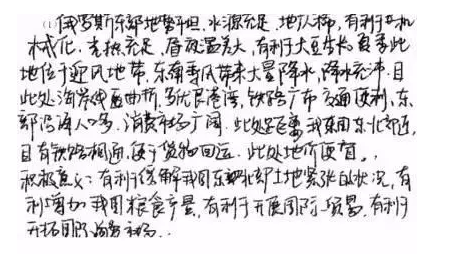 (1)俄罗斯东部地势平坦,水源充足,地广人稀,有利于机
械化.光热充足,昼夜温差大,有利于大豆生长,夏季此
地位于迎风地带,东南季风带来大量降水,降水充沛.且
此处海岸线曲折,多优良港湾,铁路广布交通便利,东
部沿海人口多,消费市场广阔.此处距离我国东北部近,
且有铁路相通,便于货物回运.此处地价便宜.,
积极意义:有利于缓解我国东部土地紧张的状况,有
利增加我国粮食产量,有利于开展国际贸易,有利于
开拓国际海外市场..